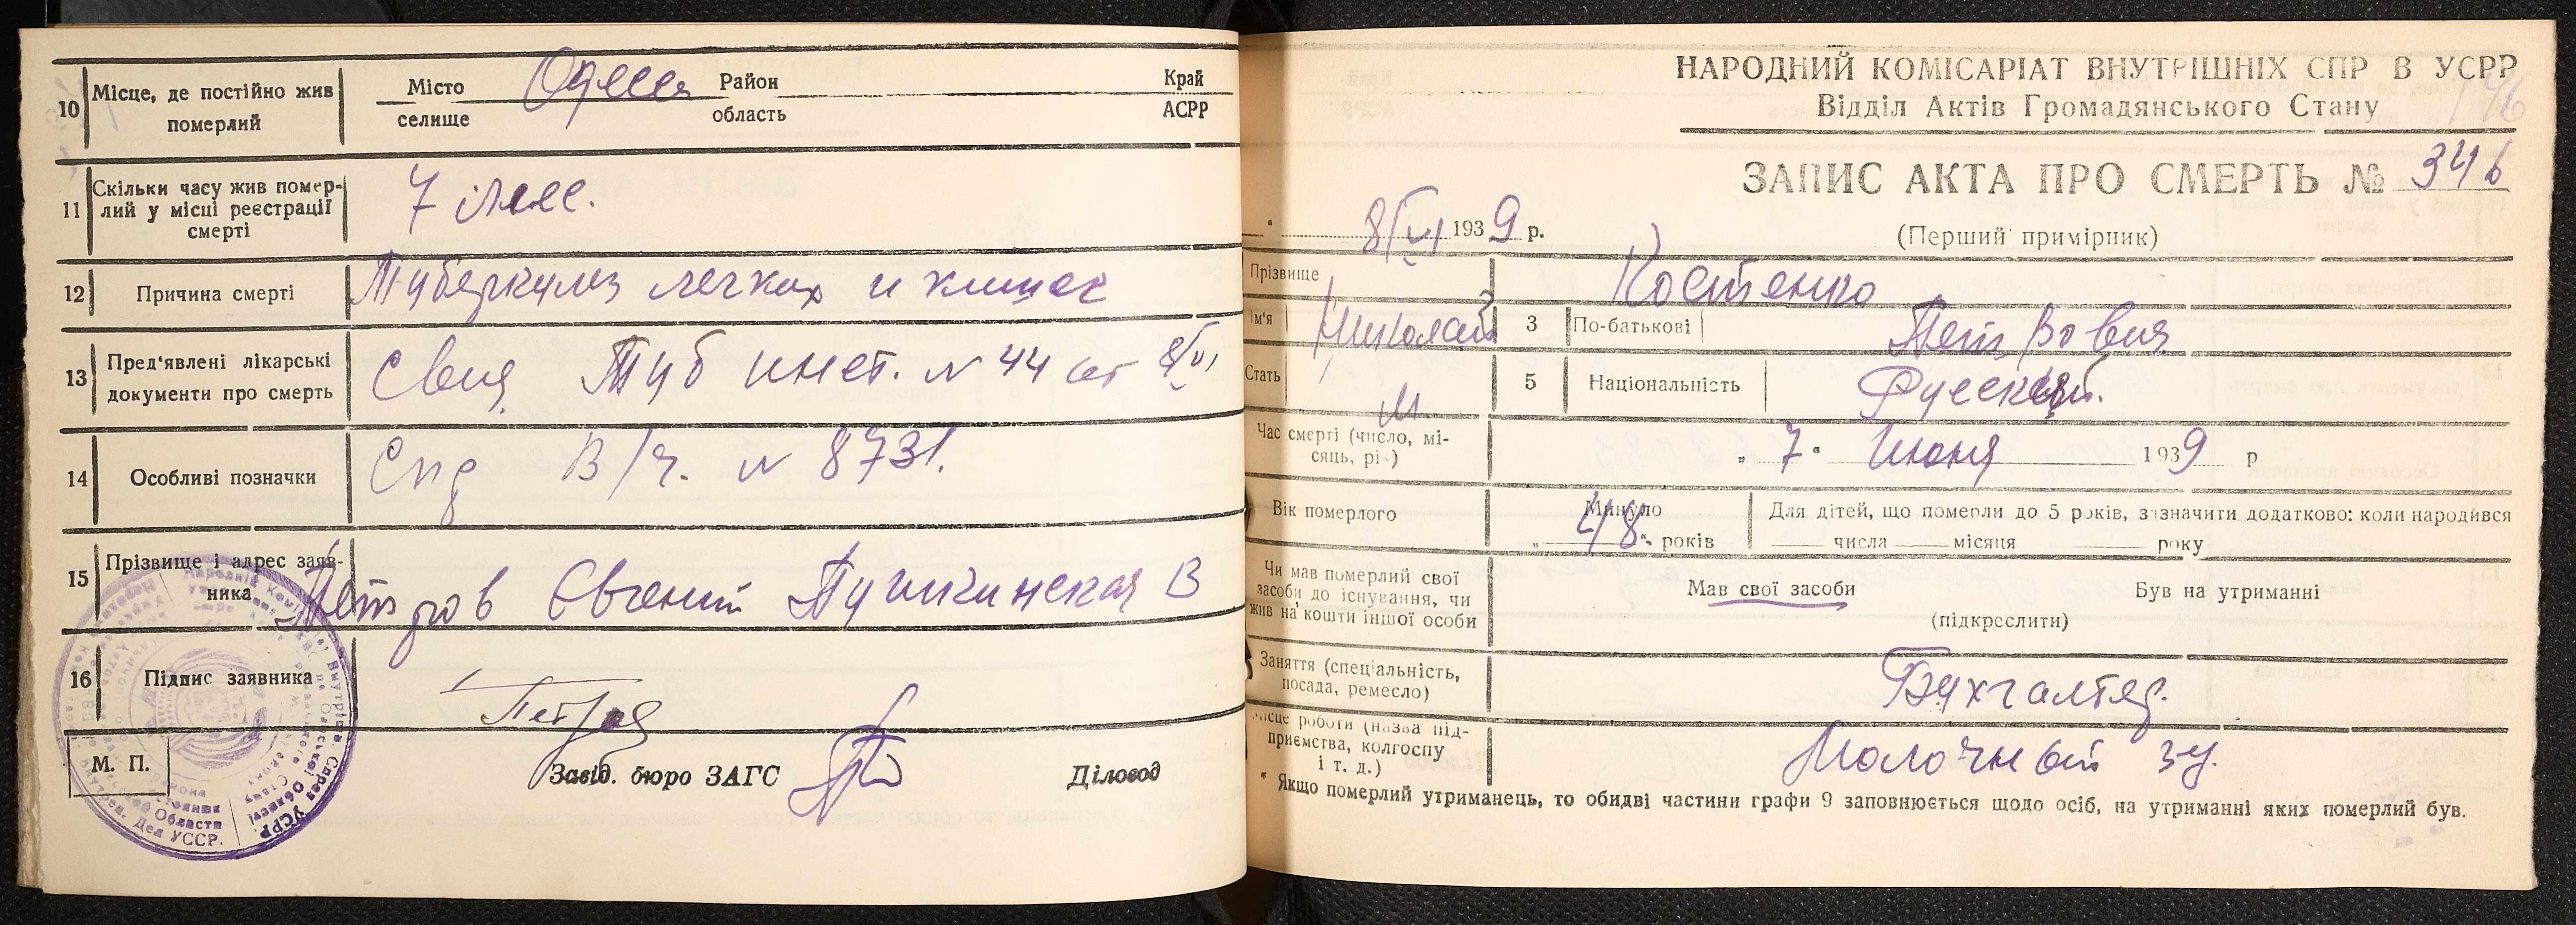 10
Місце, де постійно жив
померлий
Місто
селище
Одесса
Район
область
Край
АСРР
11
Скільки часу жив помер-
лий у місці реєстрації
смерті
7 мес.
12
Причина смерті
Туберкулез легких и кишек
13
Пред'явлені лікарські
документи про смерть
Свид Туб инст. N 44 от 8/VI
14
Особливі позначки
В/ч. N 8731.
15
Прізвище і адрес заяв-
ника
Петров Евгений Пушкинская
16
Підпис заявника
Петров
М. П.
Завід. бюро ЗАГС
Діловод
НАРОДНИЙ КОМІСАРІАТ ВНУТРІШНІХ СПР В УСРР
Відділ Актів Громадянського Стану
ЗАПИС АКТА ПРО СМЕРТЬ № 346
8/VI 1939 р.
(Перший примірник)
Прізвище
Костенко
Ім'я
Николай
3
По-батькові
Петрович
Стать
М
5
Національність
Русский.
Час смерті (число, мі-
сяць, рік)
"7" Июня 1939 р
Вік померлого
Минуло
"48" років
Для дітей, що померли до 5 років, зазначити додатково: коли народився
числа місяця року
Чи мав померлий свої
засоби до існування, чи
жив на кошти іншої особи
Мав свої засоби
Був на утриманні
(підкреслити)
Заняття (спеціальність,
посада, ремесло)
Бухгалтер.
Місце роботи (назва під-
приємства, колгоспу
і т. д.)
Молочный
* Якщо померлий утриманець, то обидві частини графи 9 заповнюється щодо осіб, на утриманні яких померлий був.